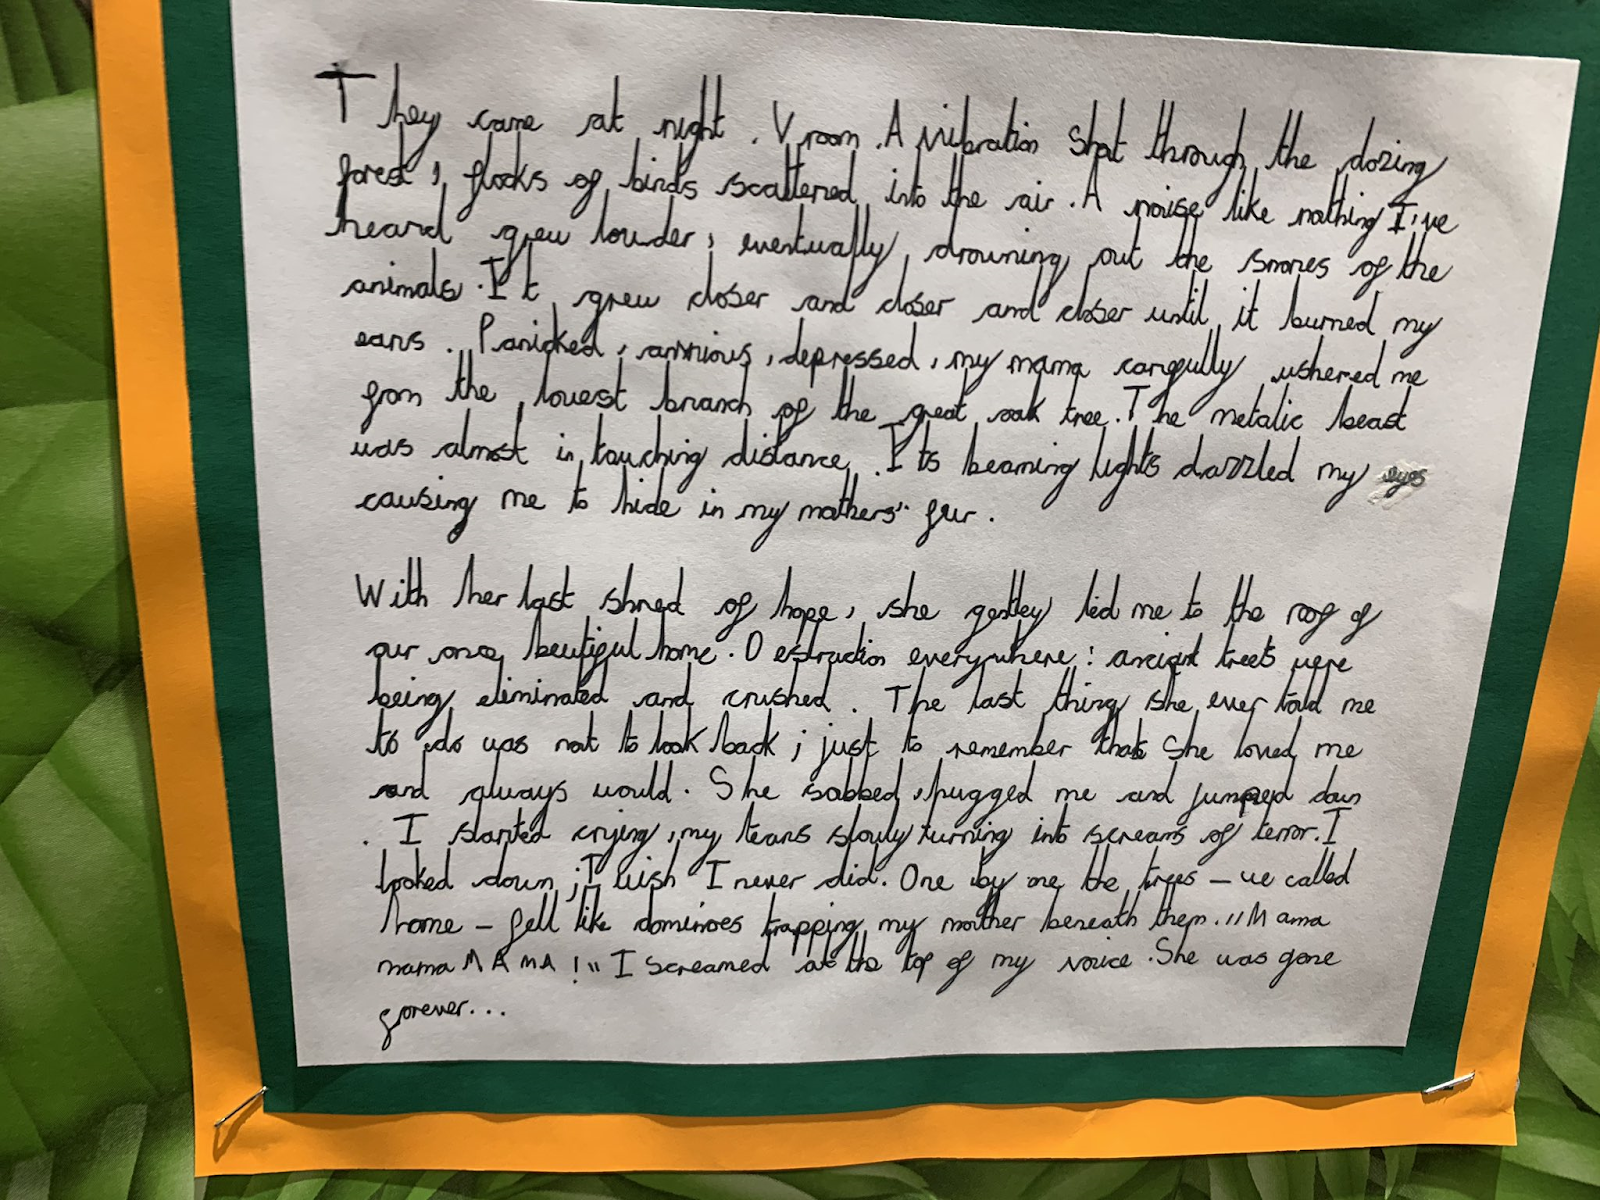 They came at night. Vroom. A vibration shot through the dozing
forest, flocks of birds scattered into the air. A noise like nothing I've
heard grew louder, eventually drowning out the snores of the
animals. It grew closer and closer and closer until it burned my
ears. Panicked, anxious, depressed, my mama carefully ushered me
from the lowest branch of the great oak tree. The metalic beast
was almost in touching distance. Its beaming lights dazzled my eyes
causing me to hide in my mothers' fur.
With her last shred of hope, she gentley led me to the roof of
our once beutiful home. Destruction everywhere: ancient trees were
being eliminated and crushed. The last thing she ever told me
to do was not to look back; just to remember that she loved me
and always would. She sobbed, hugged me and jumped down
. I started crying, my tears slowly turning into screams of terror. I
looked down; I wish I never did. One by one the trees – we called
home – fell like dominoes trapping my mother beneath them. "Mama
mama MAMA!" I screamed at the top of my voice. She was gone
forever...